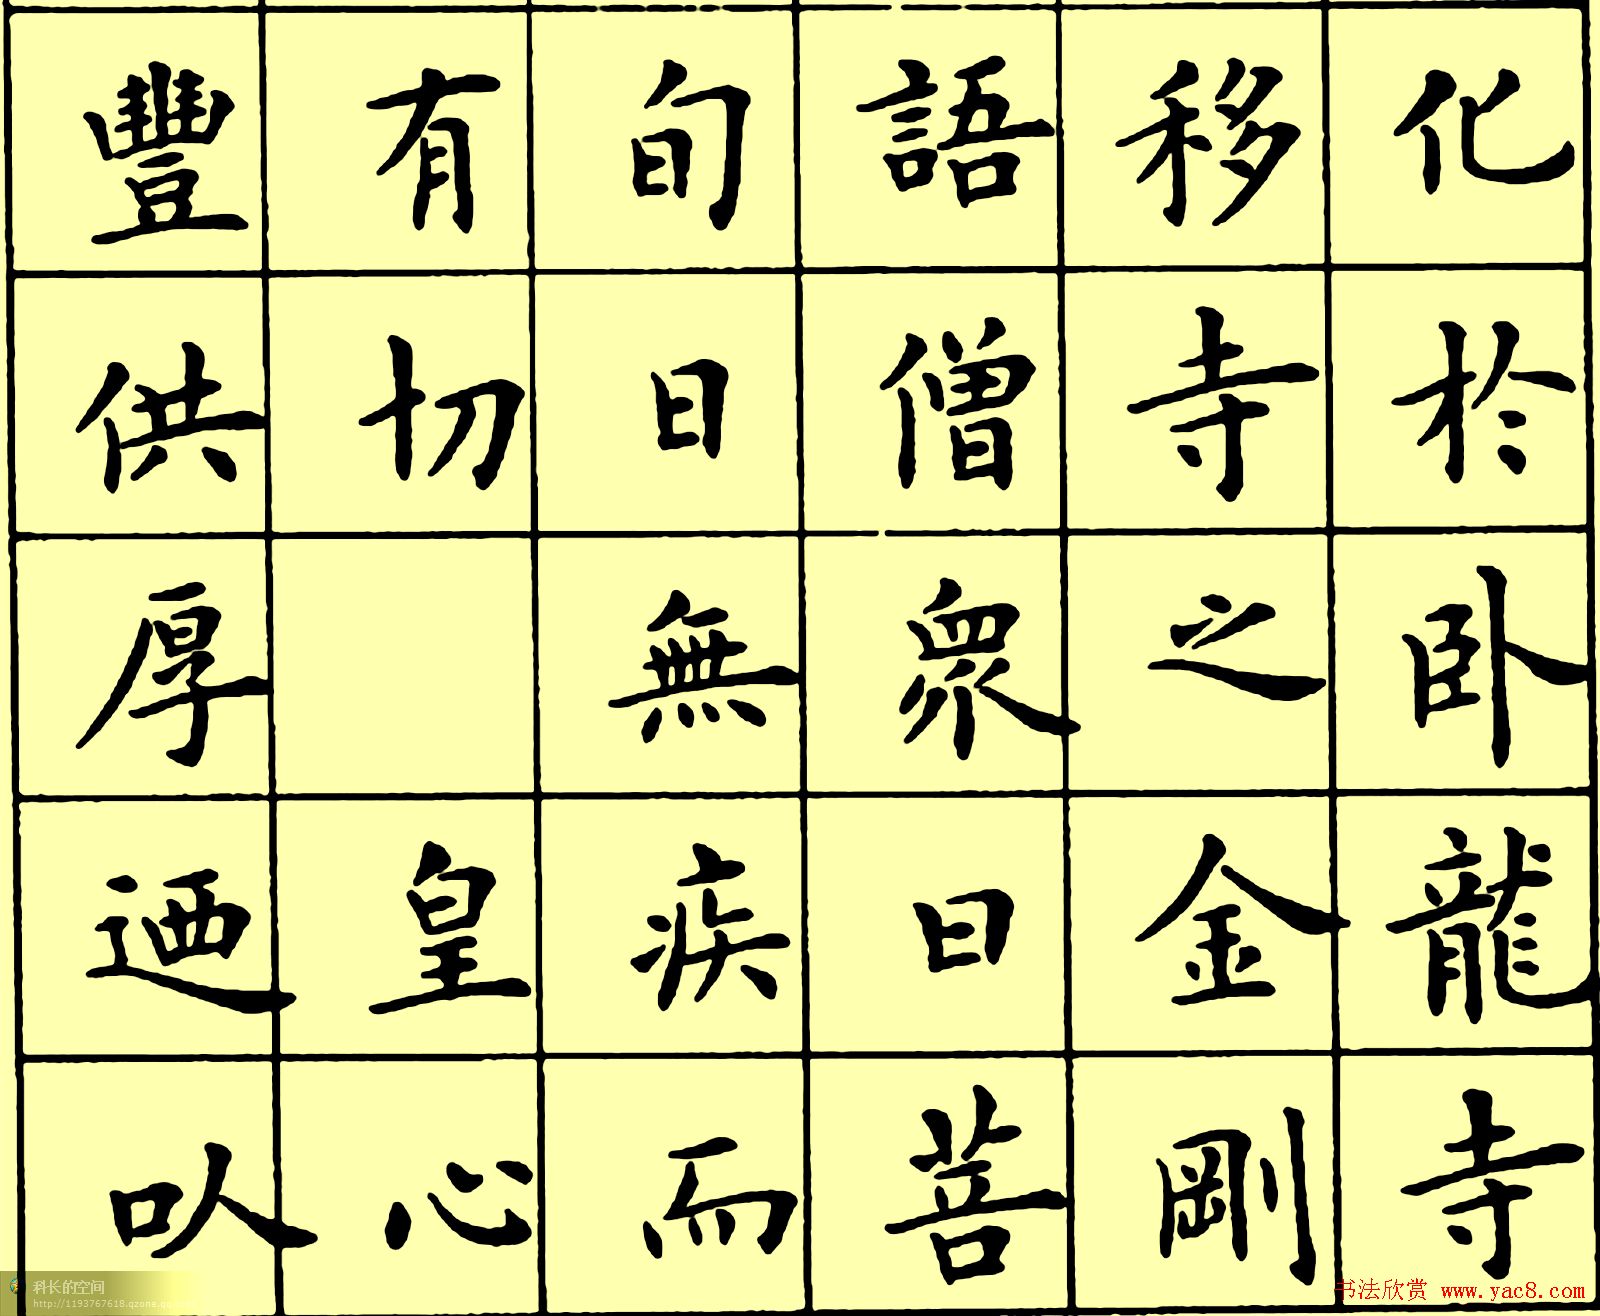 化於卧龍寺
移寺之金剛
語僧眾曰菩
旬日無疾而
有切 皇心
豐供厚迺以
科长的空间
http://1193767618.qzone.qq.
书法欣赏 www.yac8.com